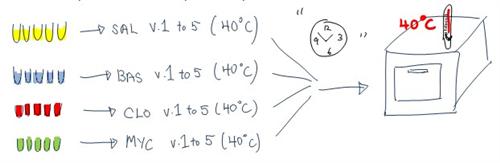 SAL v.1 to 5 (40°C)
BAS v.1 to 5 (40°C)
CLO v.1 to 5 (40°C)
MYC v.1 to 5 (40°C)
" 12 3 6 9 "
40°C